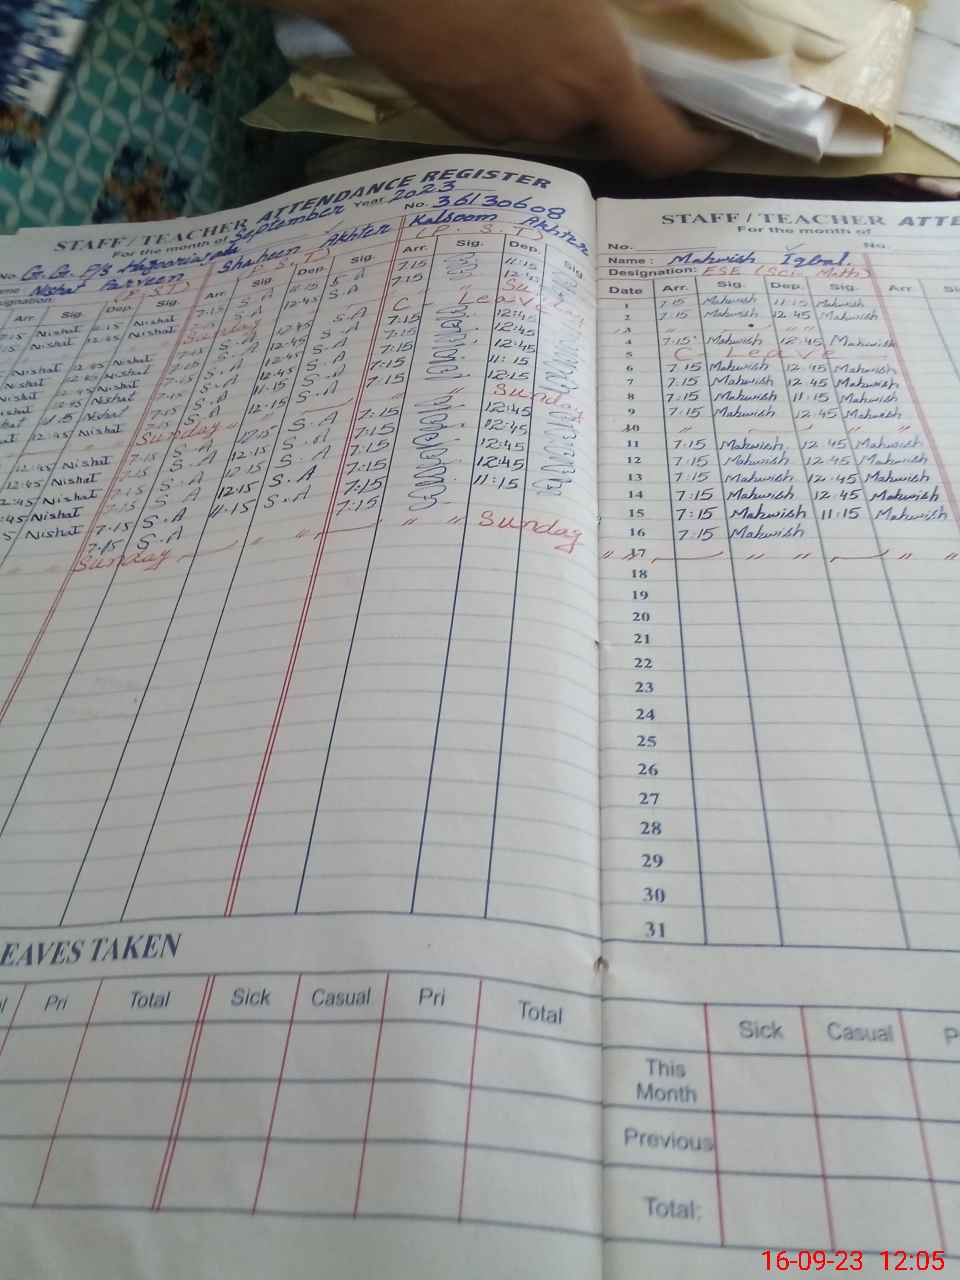 STAFF/TEACHER ATTENDANCE REGISTER
For the month of September Year 2023
No. 36130608
Nishat Parveen Shaheen Akhter Kalsoom Akhter
(P.S.T) (P.S.T)
Arr. Sig. Dep. Sig. Arr. Sig. Dep. Sig. Arr. Sig. Dep. Sig.
Nishat 11:15 Nishat 7:15 S.A 11:15 S.A 7:15 11:15
Nishat 12:45 Nishat 7:15 S.A 12:45 S.A 7:15 12:45
Sunday
C - Leave
Nishat 12:45 Nishat 7:15 S.A 12:45 S.A 7:15 12:45
7:15 S.A 12:45 S.A 7:15 12:45
7:15 S.A 11:15 S.A 7:15 11:15
7:15 S.A 12:15 S.A 7:15 12:15
Sunday " " Sunday
12:45 Nishat 7:15 S.A 12:15 S.A 7:15 12:45
12:45 Nishat 7:15 S.A 12:15 S.A 7:15 12:45
12:45 Nishat 7:15 S.A 12:15 S.A 7:15 12:45
12:45 Nishat 7:15 S.A 12:15 S.A 7:15 12:45
Nishat 7:15 S.A 11:15 S.A 7:15 11:15
7:15 S.A 7:15
" " Sunday " " " " Sunday
LEAVES TAKEN
Pri Total Sick Casual Pri Total
STAFF/TEACHER ATTE
For the month of
No. No.
Name: Mahwish Iqbal.
Designation: ESE (Sci. Math)
Date Arr. Sig. Dep. Sig. Arr. Si
1 7:15 Mahwish 11:15 Mahwish
2 7:15 Mahwish 12:45 Mahwish
3 " " " "
4 7:15 Mahwish 12:45 Mahwish
5 C - Leave
6 7:15 Mahwish 12:45 Mahwish
7 7:15 Mahwish 12:45 Mahwish
8 7:15 Mahwish 11:15 Mahwish
9 7:15 Mahwish 12:45 Mahwish
10 " " " "
11 7:15 Mahwish 12:45 Mahwish
12 7:15 Mahwish 12:45 Mahwish
13 7:15 Mahwish 12:45 Mahwish
14 7:15 Mahwish 12:45 Mahwish
15 7:15 Mahwish 11:15 Mahwish
16 7:15 Mahwish
17 " " " "
18
19
20
21
22
23
24
25
26
27
28
29
30
31
Sick Casual P
This Month
Previous
Total:
16-09-23 12:05